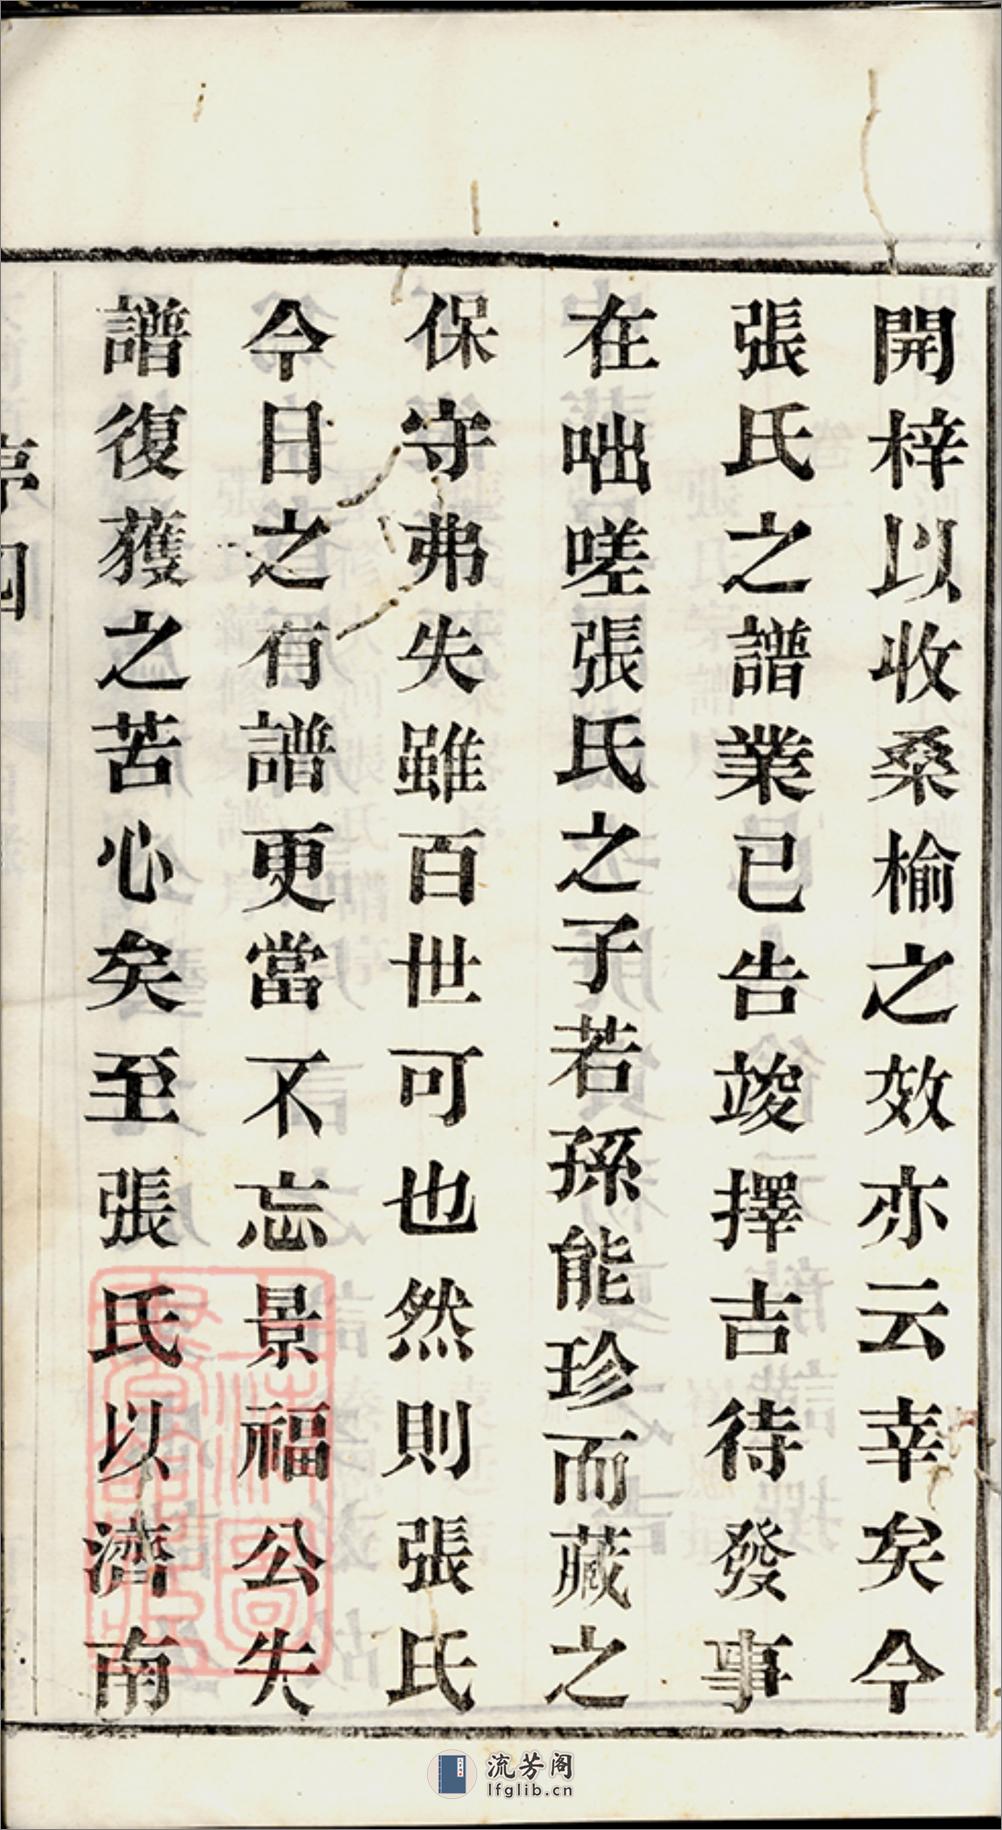 開梓以收桑榆之效亦云幸矣今
張氏之譜業已告竣擇吉待發事
在咄嗟張氏之子若孫能珍而藏之
保守弗失雖百世可也然則張氏
今日之有譜更當不忘景福公失
譜復獲之苦心矣至張氏以濟南
流芳阁
lfglib.cn